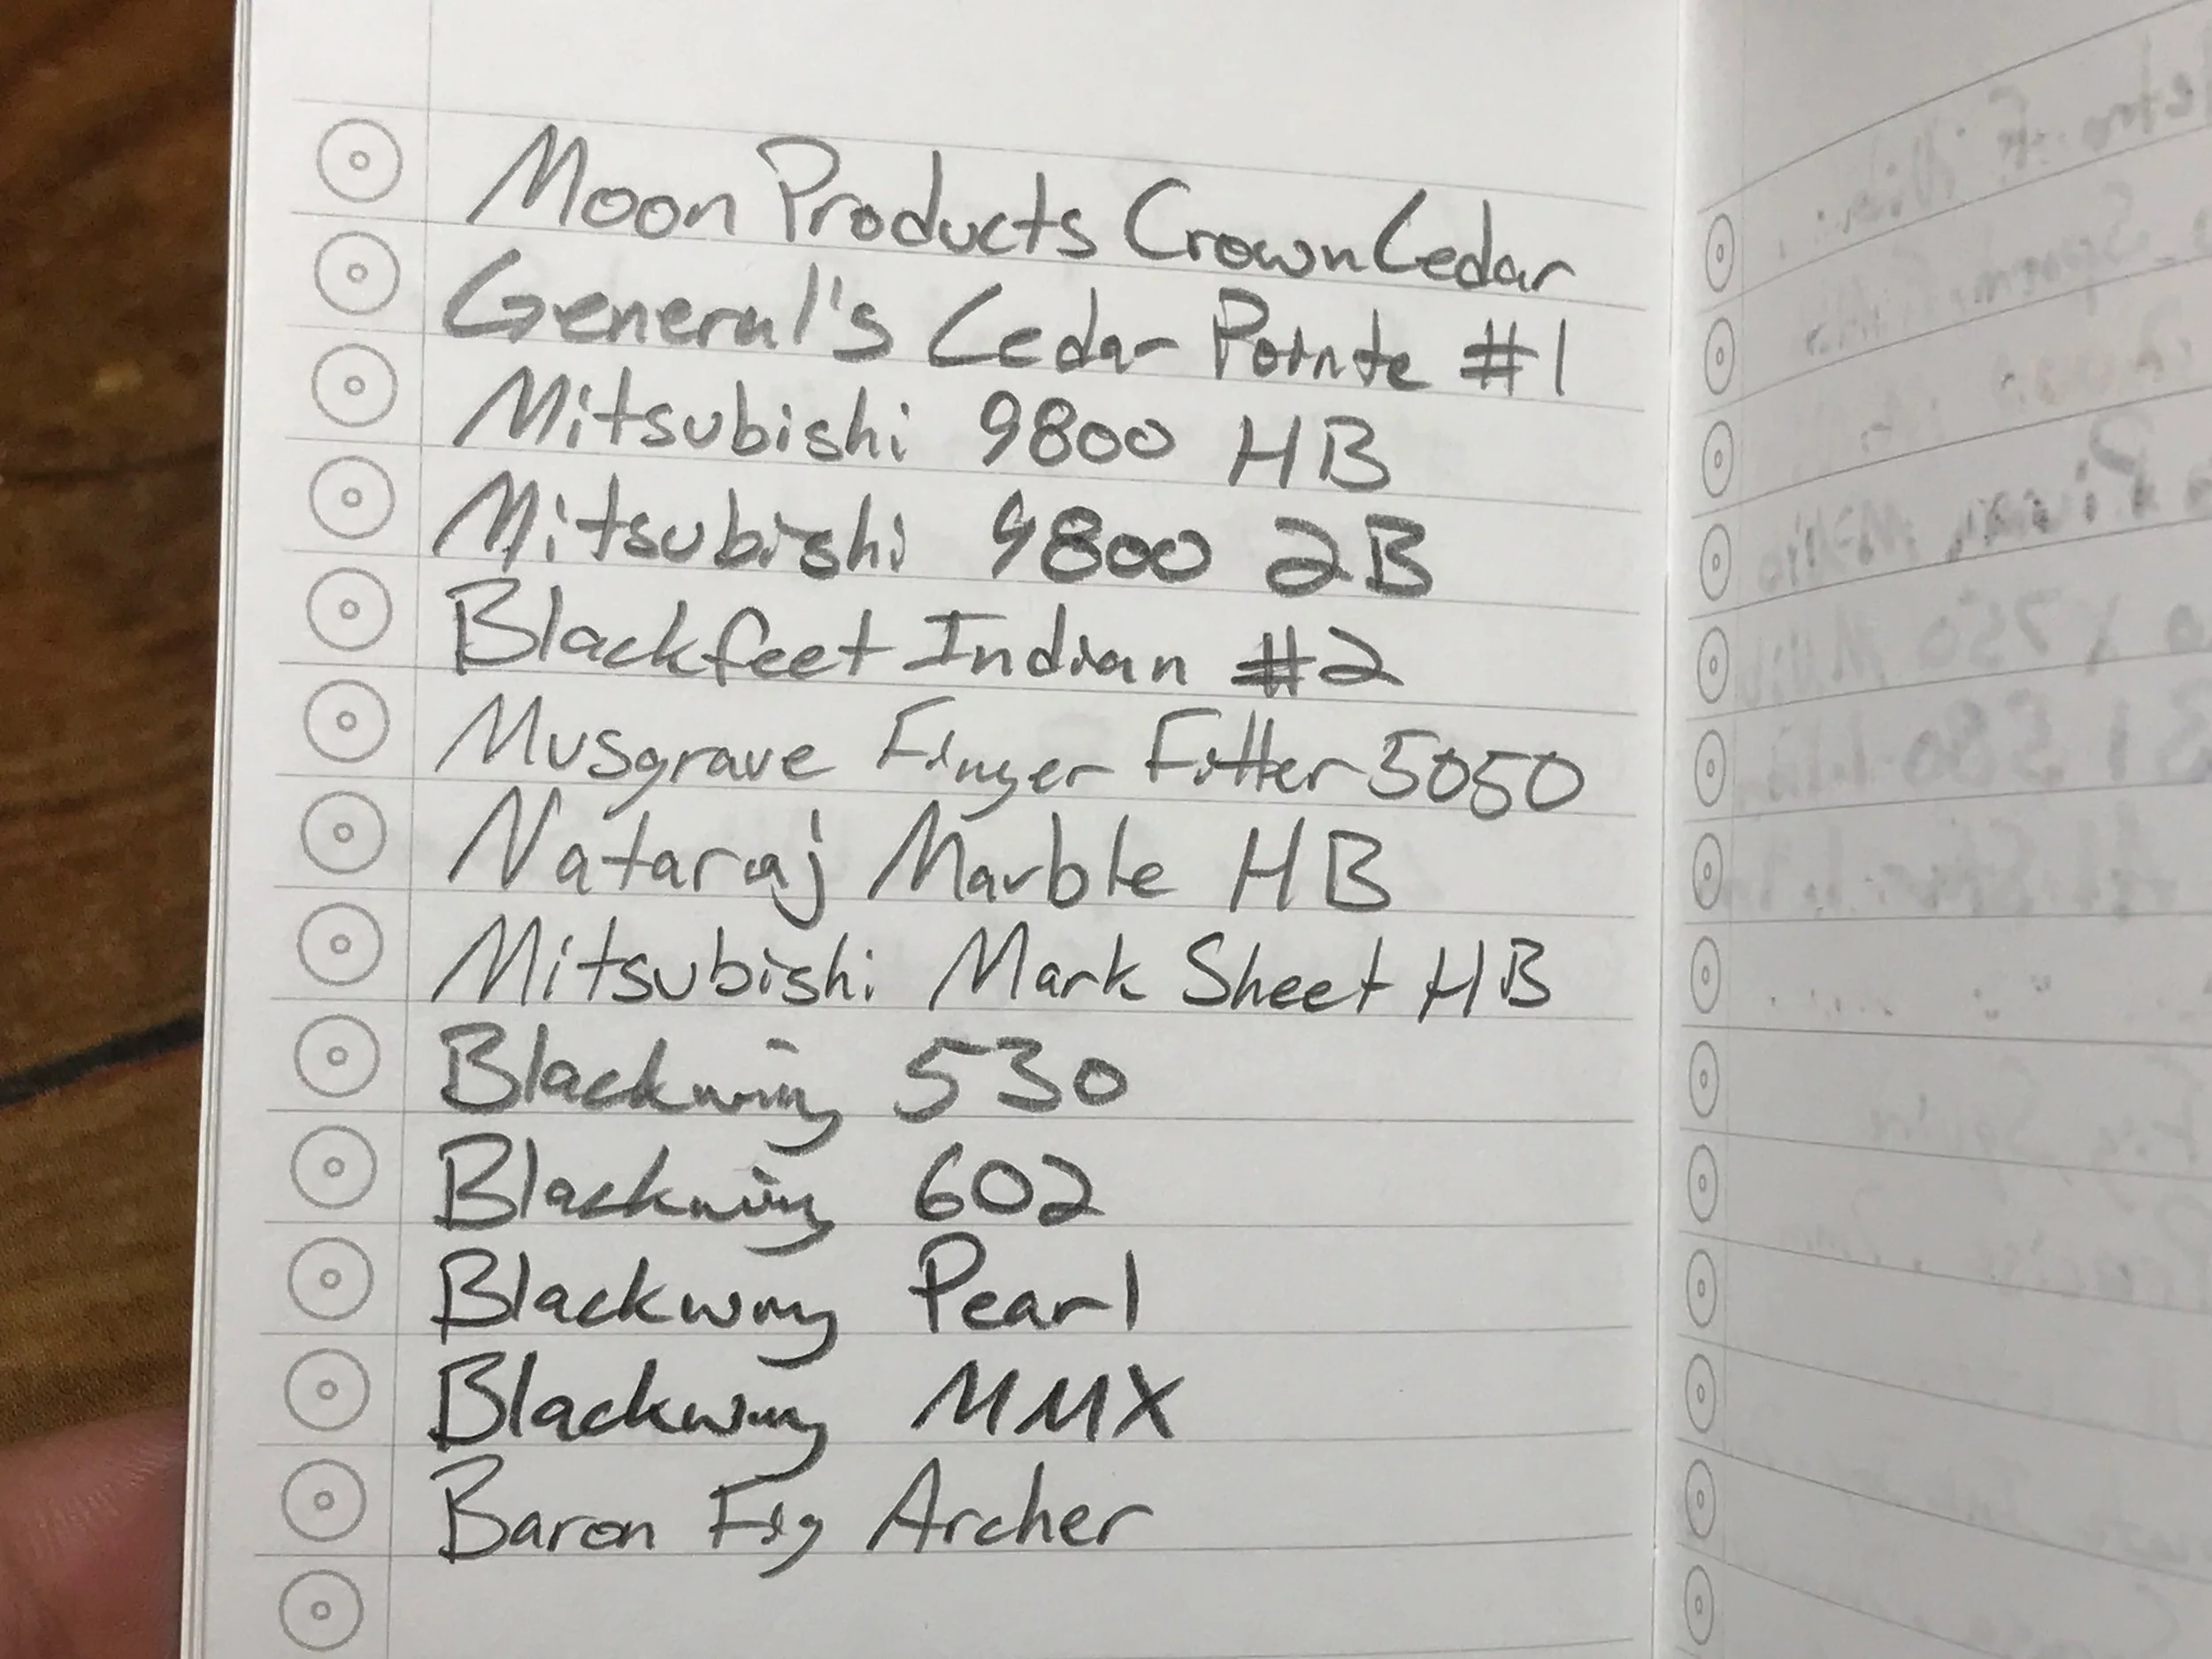 Moon Products Crown Cedar
General's Cedar Pointe #1
Mitsubishi 9800 HB
Mitsubishi 9800 2B
Blackfeet Indian #2
Musgrave Finger Fitter 5050
Nataraj Marble HB
Mitsubishi Mark Sheet HB
Blackwing 530
Blackwing 602
Blackwing Pearl
Blackwing MMX
Baron Fig Archer